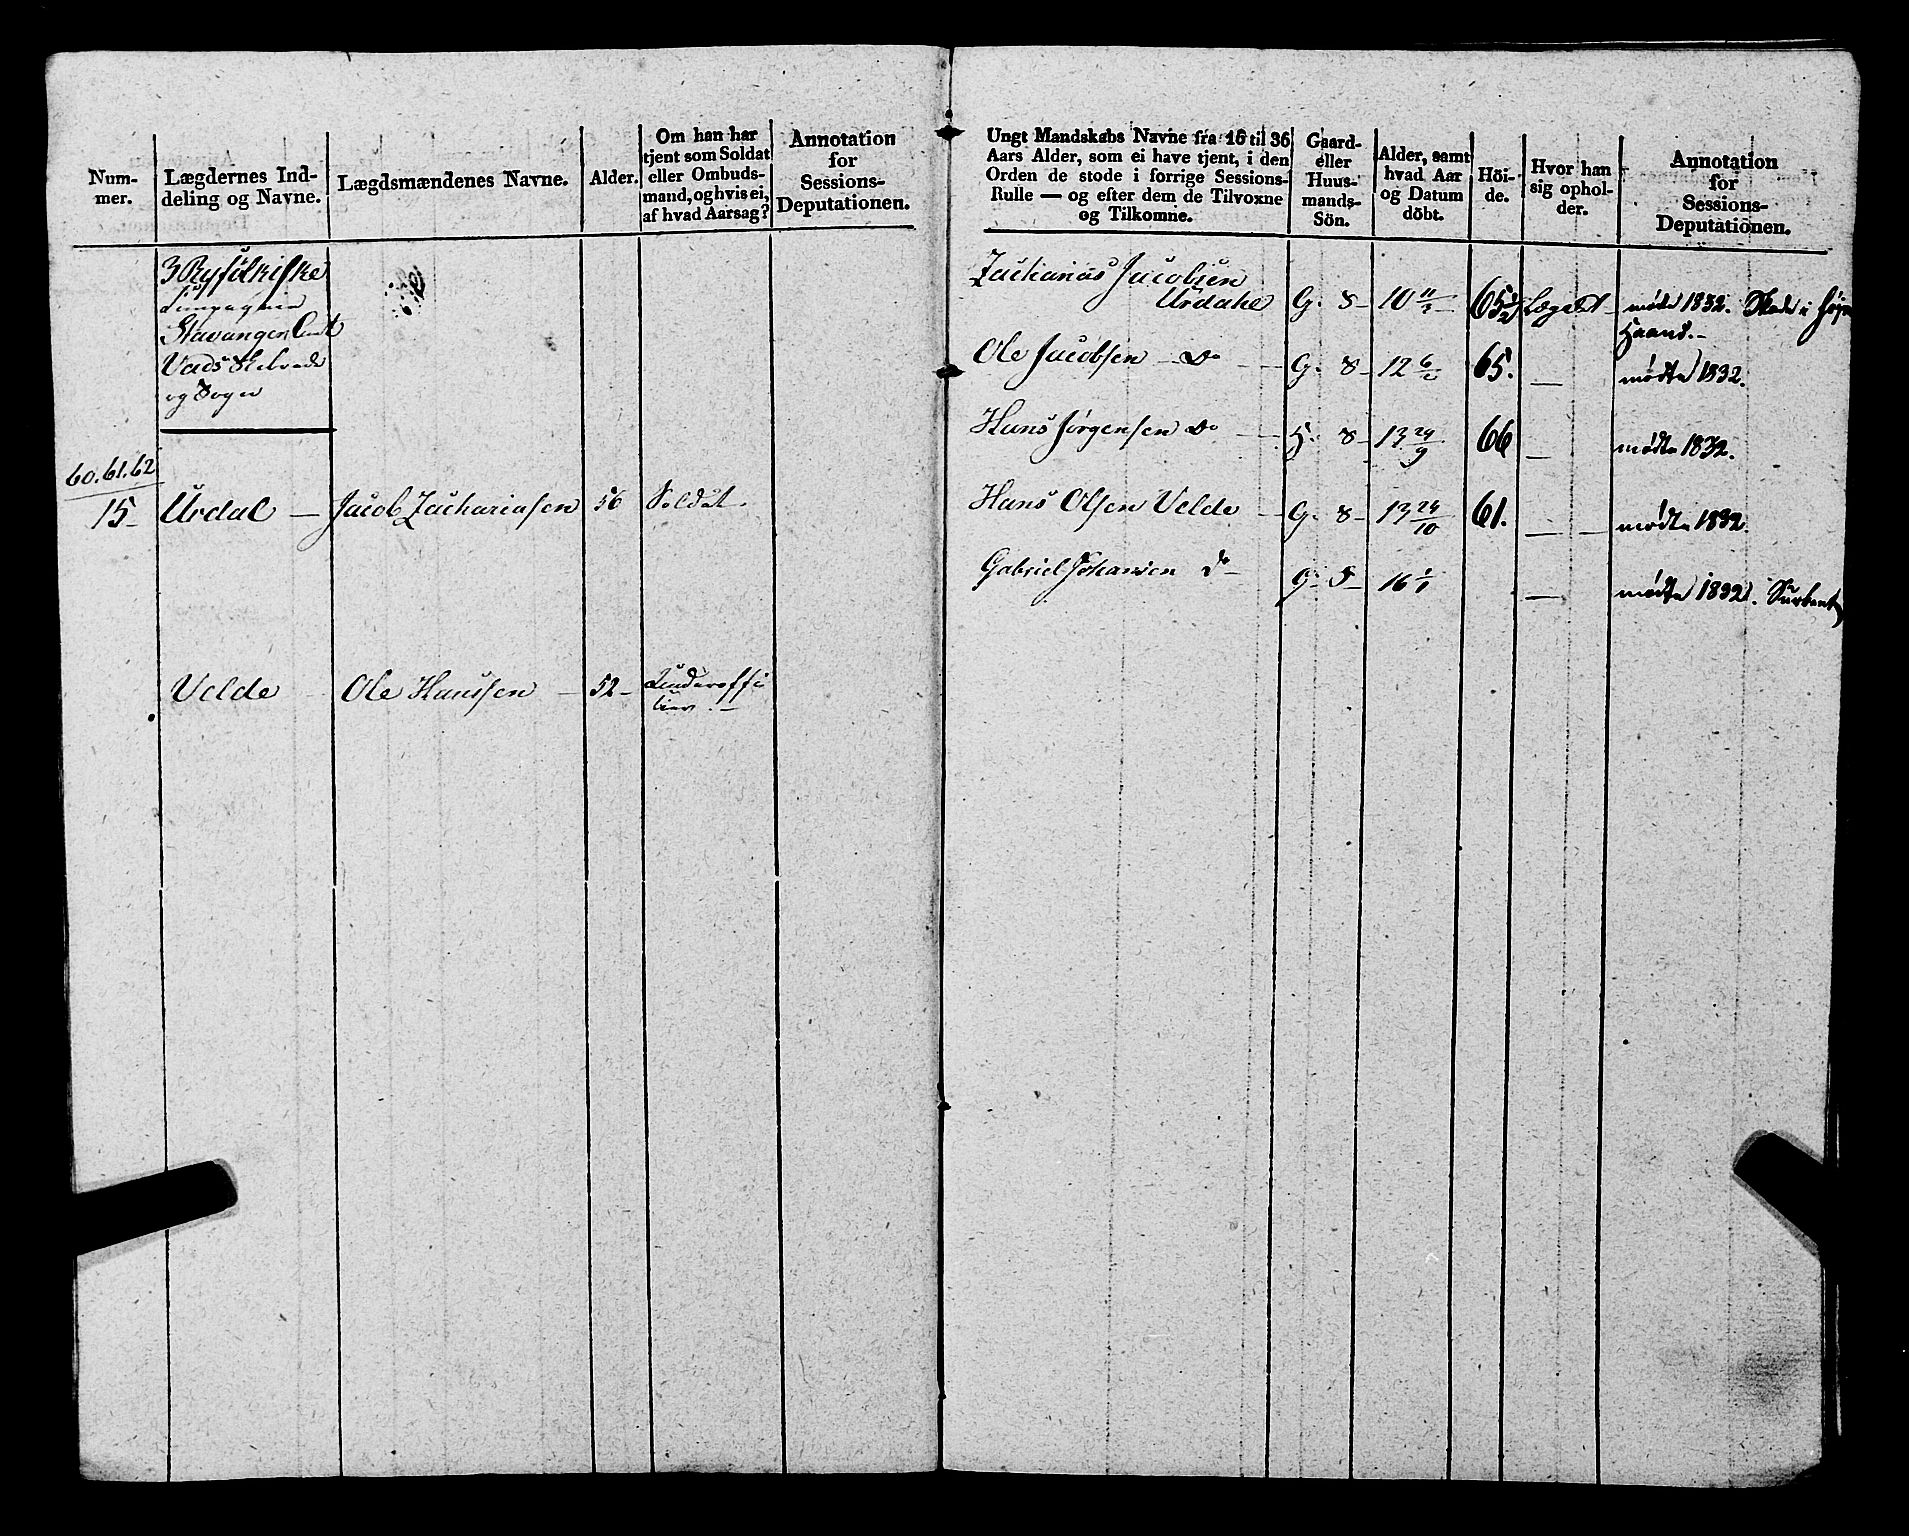 Num-
mer.
Lægdernes Ind-
deling og Navne.
Lægdsmændenes Navne.
Alder.
Om han har
tjent som Soldat
eller Ombuds-
mand, og hvis ei,
af hvad Aarsag?
Annotation
for
Sessions-
Deputationen.
3 Ryfylkiske
Compagnie
Stavanger Amt
og Sogn
60. 61. 62
15- Urdal — Jacob Zachariasen 56 Soldat.
Velde Ole Hanssen — 52- Underoffi
cier. —
Ungt Mandskabs Navne fra 16 til 36
Aars Alder, som ei have tjent, i den
Orden de stode i forrige Sessions-
Rulle — og efter dem de Tilvoxne
og Tilkomne.
Gaard-
eller
Huus-
mands-
Sön.
Alder, samt
hvad Aar
og Datum
döbt.
Höi-
de.
Hvor han
sig ophol-
der.
Annotation
for
Sessions-
Deputationen.
Zacharias Jacobsen
Urdahl G. 8- 10 11/3 65 1/2 Lægdet - møtte 1832. Skade i høire
Haand.-
Ole Jacobsen — Do G. 8- 12 65. — mødte 1832.
Hans Jørgensen Do H. 8- 13 29/9 66 — mødte 1832.
Hans Olsen Velde G. 8- 13 24/10 61. — mødte 1832
Gabriel Johansen Do G. 5- 16 1/1 — mødte 1832.